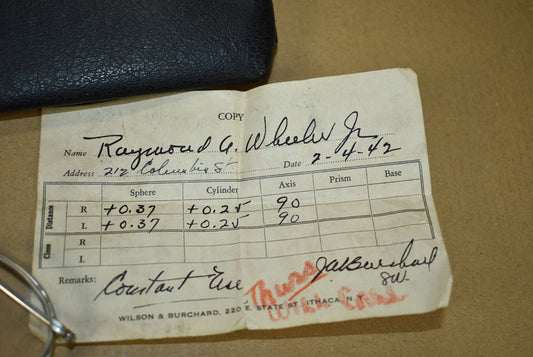 COPY
Name Raymond A. Wheeler Jr
Address 212 Columbia St Date 2-4-42
Sphere Cylinder Axis Prism Base
Distance R +0.37 +0.25 90
L +0.37 +0.25 90
Close R
L
Remarks: Constant Use J A Burchard
Thurs
Will Call
WILSON & BURCHARD, 220 E. STATE ST. ITHACA, N. Y.